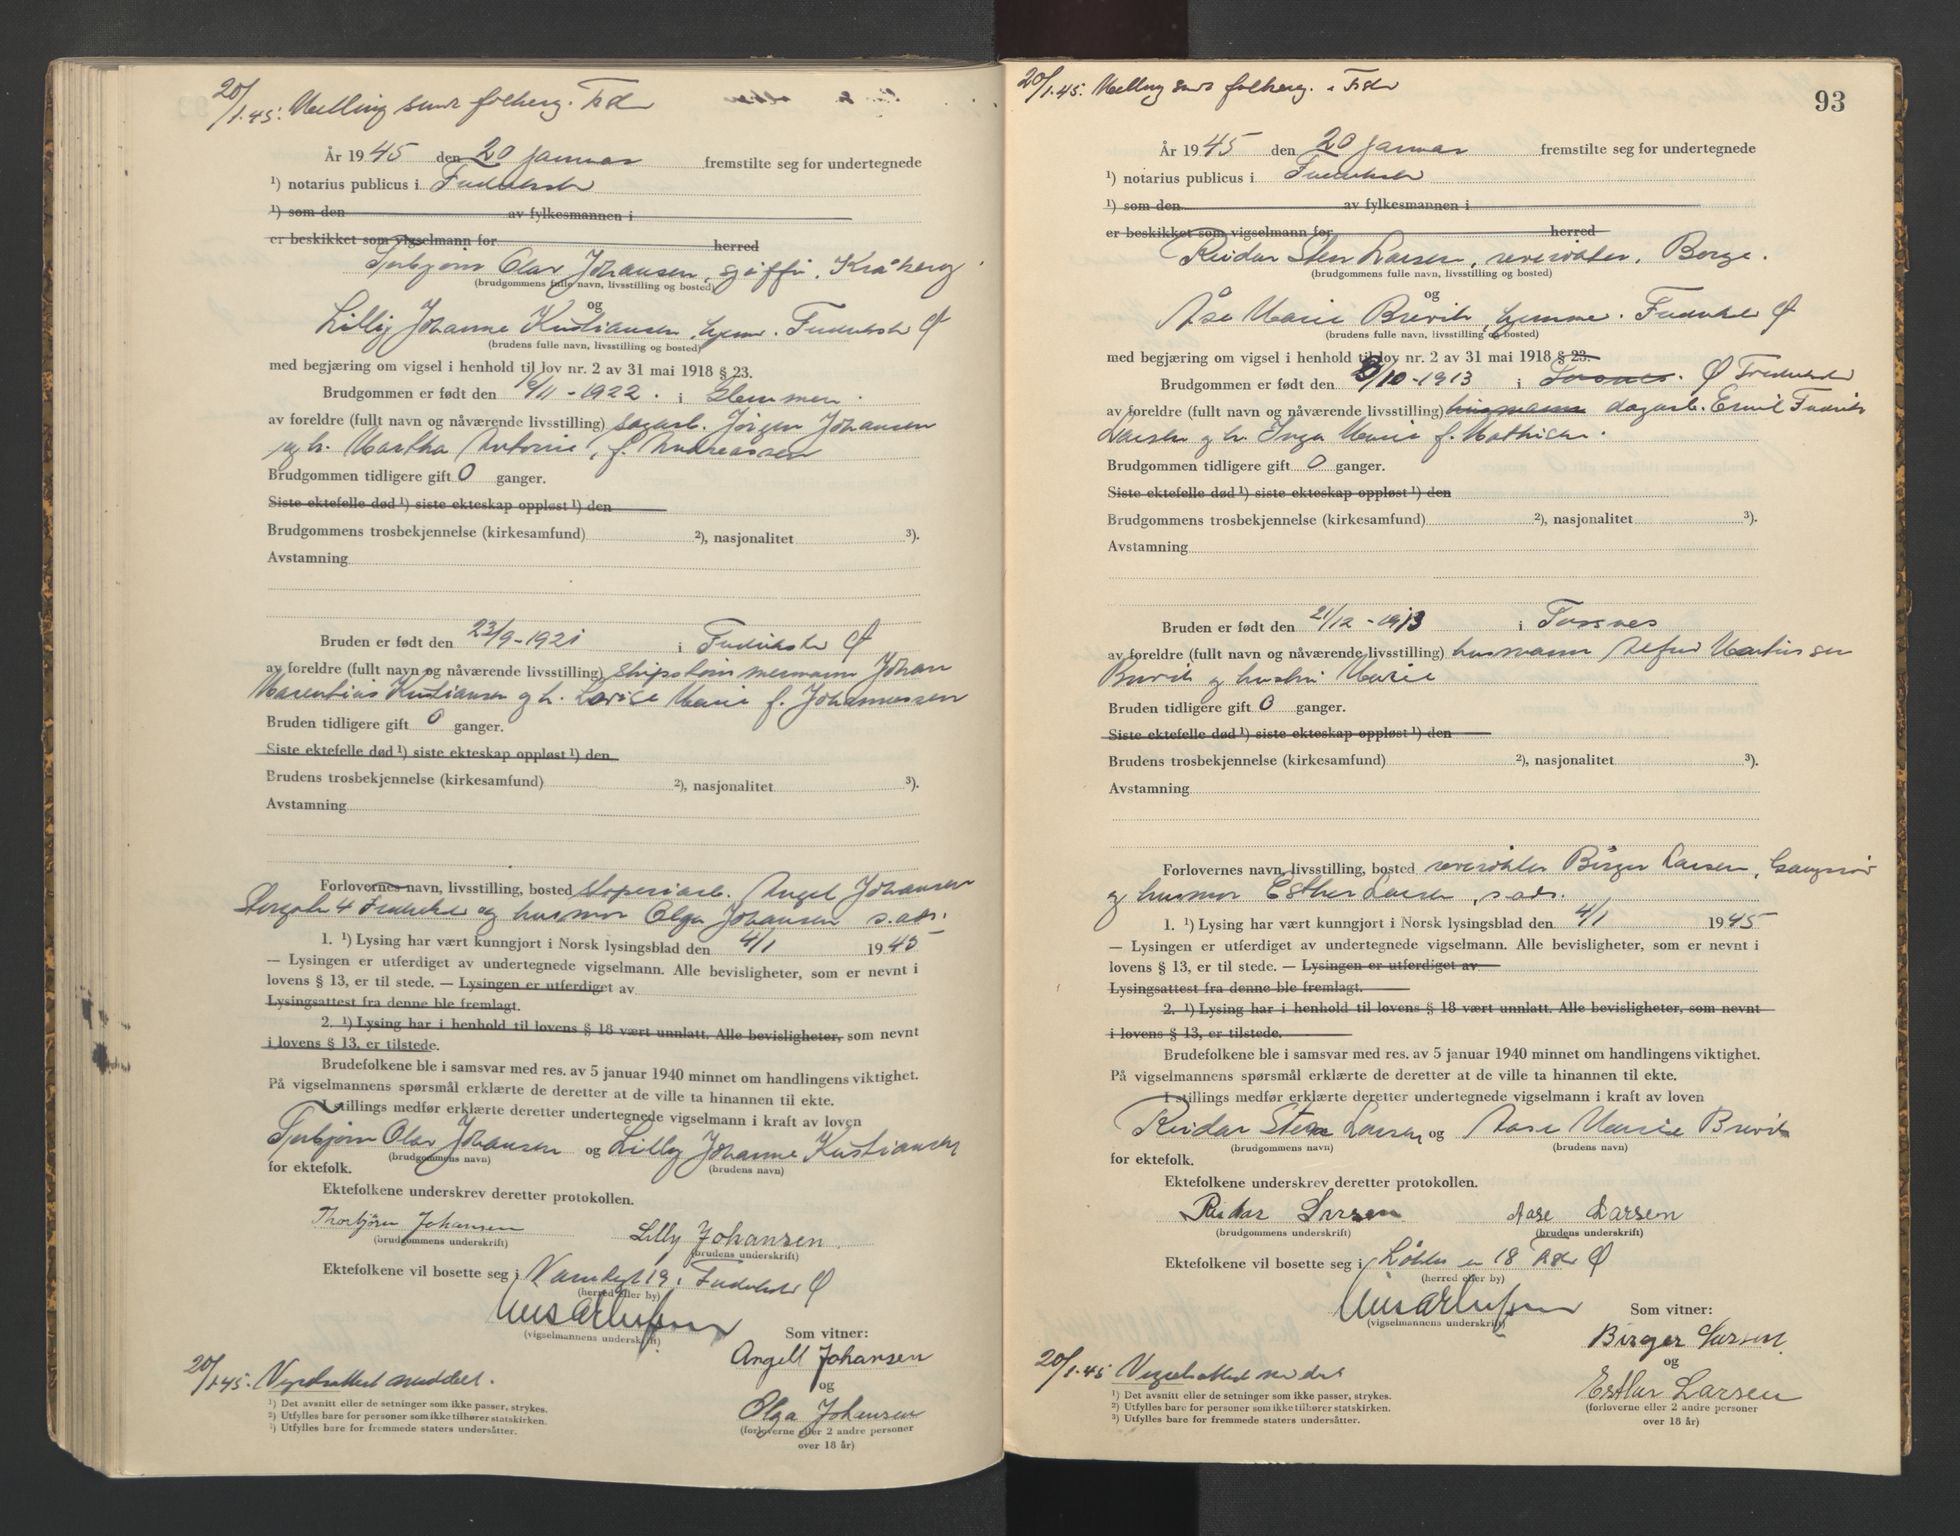 20/1.45. Melding sendt folkereg. Fr.stad
År 1945 den 20 januar fremstilte seg for undertegnede
¹) notarius publicus i Fredrikstad
¹) som den av fylkesmannen i
er beskikket som vigselmann for herred
Torbjørn Olav Johansen, sjåfør, Kråkerøy
(brudgommens fulle navn, livsstilling og bosted)
og
Lilly Johanne Kristiansen, hjem. Fredrikstad Ø
(brudens fulle navn, livsstilling og bosted)
med begjæring om vigsel i henhold til lov nr. 2 av 31 mai 1918 § 23.
Brudgommen er født den 6/11-1922. i Glemmen.
av foreldre (fullt navn og nåværende livsstilling) sagarb. Jørgen Johansen
og h. Martha Antonie, f. Andreassen
Brudgommen tidligere gift 0 ganger.
Siste ektefelle død ¹) siste ekteskap oppløst ¹) den
Brudgommens trosbekjennelse (kirkesamfund) ²), nasjonalitet ³).
Avstamning
Bruden er født den 23/9-1921 i Fredrikstad Ø
av foreldre (fullt navn og nåværende livsstilling) skipstømmermann Johan
Marentius Kristiansen og h. Lovise Marie f. Johannessen
Bruden tidligere gift 0 ganger.
Siste ektefelle død ¹) siste ekteskap oppløst ¹) den
Brudens trosbekjennelse (kirkesamfund) ²), nasjonalitet ³).
Avstamning
Forlovernes navn, livsstilling, bosted støperiarb. Angel Johansen
4 Fredrikstad og husmor Olga Johansen s. ads.
1. ¹) Lysing har vært kunngjort i Norsk lysingsblad den 4/1 1945
— Lysingen er utferdiget av undertegnede vigselmann. Alle bevisligheter, som er nevnt i
lovens § 13, er til stede. — Lysingen er utferdiget av
Lysingsattest fra denne ble fremlagt.
2. ¹) Lysing har i henhold til lovens § 18 vært unnlatt. Alle bevisligheter, som nevnt
i lovens § 13, er tilstede.
Brudefolkene ble i samsvar med res. av 5 januar 1940 minnet om handlingens viktighet.
På vigselmannens spørsmål erklærte de deretter at de ville ta hinannen til ekte.
I stillings medfør erklærte deretter undertegnede vigselmann i kraft av loven
Torbjørn Olav Johansen og Lilly Johanne Kristiansen
(brudgommens navn) (brudens navn)
for ektefolk.
Ektefolkene underskrev deretter protokollen.
Thorbjørn Johansen Lilly Johansen
(brudgommens underskrift) (brudens underskrift)
Ektefolkene vil bosette seg i 19, Fredrikstad Ø
(herred eller by)
(vigselmannens underskrift)
Som vitner:
Angell Johansen
og
Olga Johansen
(forloverne eller 2 andre personer
over 18 år)
20/1.45. Vigselsattest meddelt.
¹) Det avsnitt eller de setninger som ikke passer, strykes.
²) Utfylles bare for personer som ikke tilhører statskirken.
³) Utfylles bare for fremmede staters undersåtter.
93
20/1.45. Melding sendt folkereg. i Fr.stad
År 1945 den 20 januar fremstilte seg for undertegnede
¹) notarius publicus i Fredrikstad
¹) som den av fylkesmannen i
er beskikket som vigselmann for herred
Reidar Sten Larsen, reverøkter, Borge.
(brudgommens fulle navn, livsstilling og bosted)
og
Åse Marie Brevik, hjemme. Fredrikstad Ø
(brudens fulle navn, livsstilling og bosted)
med begjæring om vigsel i henhold til lov nr. 2 av 31 mai 1918 § 23.
Brudgommen er født den /10-1913 i Torsnes. Ø Fredrikstad
av foreldre (fullt navn og nåværende livsstilling) husmann dagarb. Emil Fredrik
Larsen og h. Inga Marie f. Mathisen.
Brudgommen tidligere gift 0 ganger.
Siste ektefelle død ¹) siste ekteskap oppløst ¹) den
Brudgommens trosbekjennelse (kirkesamfund) ²), nasjonalitet ³).
Avstamning
Bruden er født den 21/12-1913 i Torsnes
av foreldre (fullt navn og nåværende livsstilling) husmann Alfred Martinsen
Brevik og hustru Marie
Bruden tidligere gift 0 ganger.
Siste ektefelle død ¹) siste ekteskap oppløst ¹) den
Brudens trosbekjennelse (kirkesamfund) ²), nasjonalitet ³).
Avstamning
Forlovernes navn, livsstilling, bosted reverøkter Birger Larsen,
og husmor Esther Larsen, s. ads.
1. ¹) Lysing har vært kunngjort i Norsk lysingsblad den 4/1 1945
— Lysingen er utferdiget av undertegnede vigselmann. Alle bevisligheter, som er nevnt i
lovens § 13, er til stede. — Lysingen er utferdiget av
Lysingsattest fra denne ble fremlagt.
2. ¹) Lysing har i henhold til lovens § 18 vært unnlatt. Alle bevisligheter, som nevnt
i lovens § 13, er tilstede.
Brudefolkene ble i samsvar med res. av 5 januar 1940 minnet om handlingens viktighet.
På vigselmannens spørsmål erklærte de deretter at de ville ta hinannen til ekte.
I stillings medfør erklærte deretter undertegnede vigselmann i kraft av loven
Reidar Sten Larsen og Aase Marie Brevik
(brudgommens navn) (brudens navn)
for ektefolk.
Ektefolkene underskrev deretter protokollen.
Reidar Larsen Aase Larsen
(brudgommens underskrift) (brudens underskrift)
Ektefolkene vil bosette seg i 18 Ø
(herred eller by)
(vigselmannens underskrift)
Som vitner:
Birger Larsen
og
Esther Larsen
(forloverne eller 2 andre personer
over 18 år)
20/1.45 Vigselsattest meddelt
¹) Det avsnitt eller de setninger som ikke passer, strykes.
²) Utfylles bare for personer som ikke tilhører statskirken.
³) Utfylles bare for fremmede staters undersåtter.